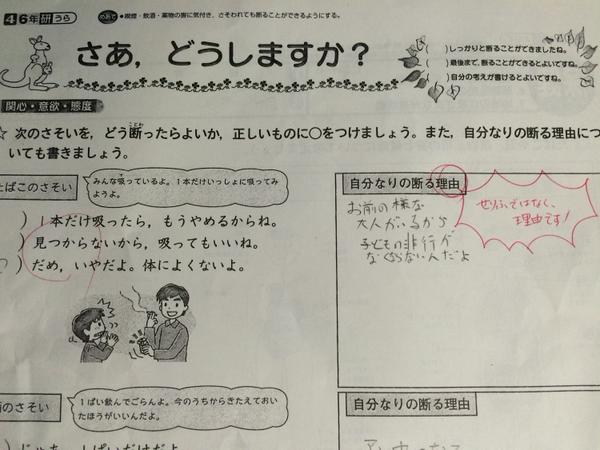 46年 研 うら
めあて ●喫煙・飲酒・薬物の害に気付き、さそわれても断ることができるようにする。
さあ，どうしますか？
(　)しっかりと断ることができましたね。
(　)最後まで，断ることができるとよいですね。
(　)自分の考えが書けるとよいですね。
関心・意欲・態度
☆ 次のさそいを，どう断ったらよいか，正しいものに○をつけましょう。また，自分なりの断る理由につ
ことわ
いても書きましょう。
たばこのさそい
みんな吸っているよ。1本だけいっしょに吸ってみ
ようよ。
) 1本だけ吸ったら，もうやめるからね。
) 見つからないから，吸ってもいいね。
) だめ，いやだよ。体によくないよ。
自分なりの断る理由
お前の様な
大人がいるから
子どもの非行が
なくならないんだよ
せりふではなく、
理由です！
のさそい
1ぱい飲んでごらんよ。今のうちからきたえておい
たほうがいいんだよ。
自分なりの断る理由